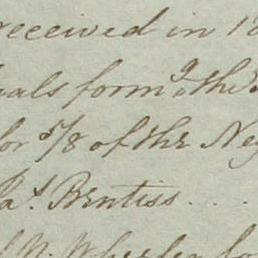 received in 18
als form'g the
for 5/8 of the Neg
Jas. Bentiss....
N. Wheeler fo